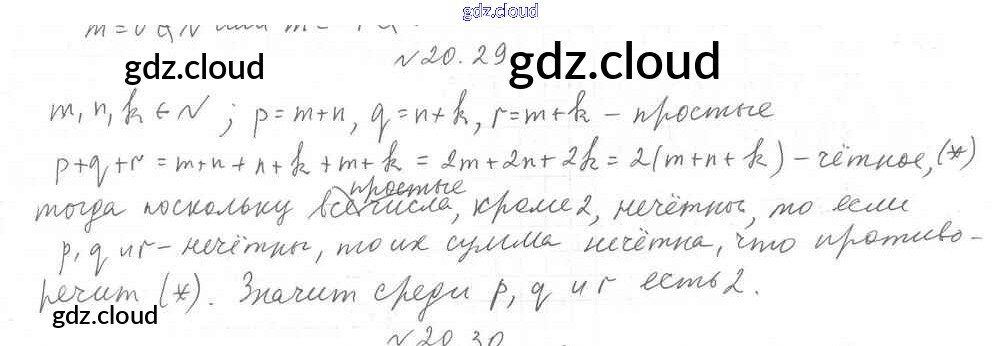 gdz.cloud
№20.29
gdz.cloud
gdz.cloud
m, n, k ∈ N ; p=m+n, q=n+k, r=m+k – простые
p+q+r = m+n+n+k+m+k = 2m+2n+2k = 2(m+n+k) – чётное, (*)
простые
тогда поскольку все числа, кроме 2, нечётны, то если
p, q и r – нечётны, то их сумма нечётна, что противо-
речит (*). Значит среди p, q и r есть 2.
gdz.cloud
№20.30